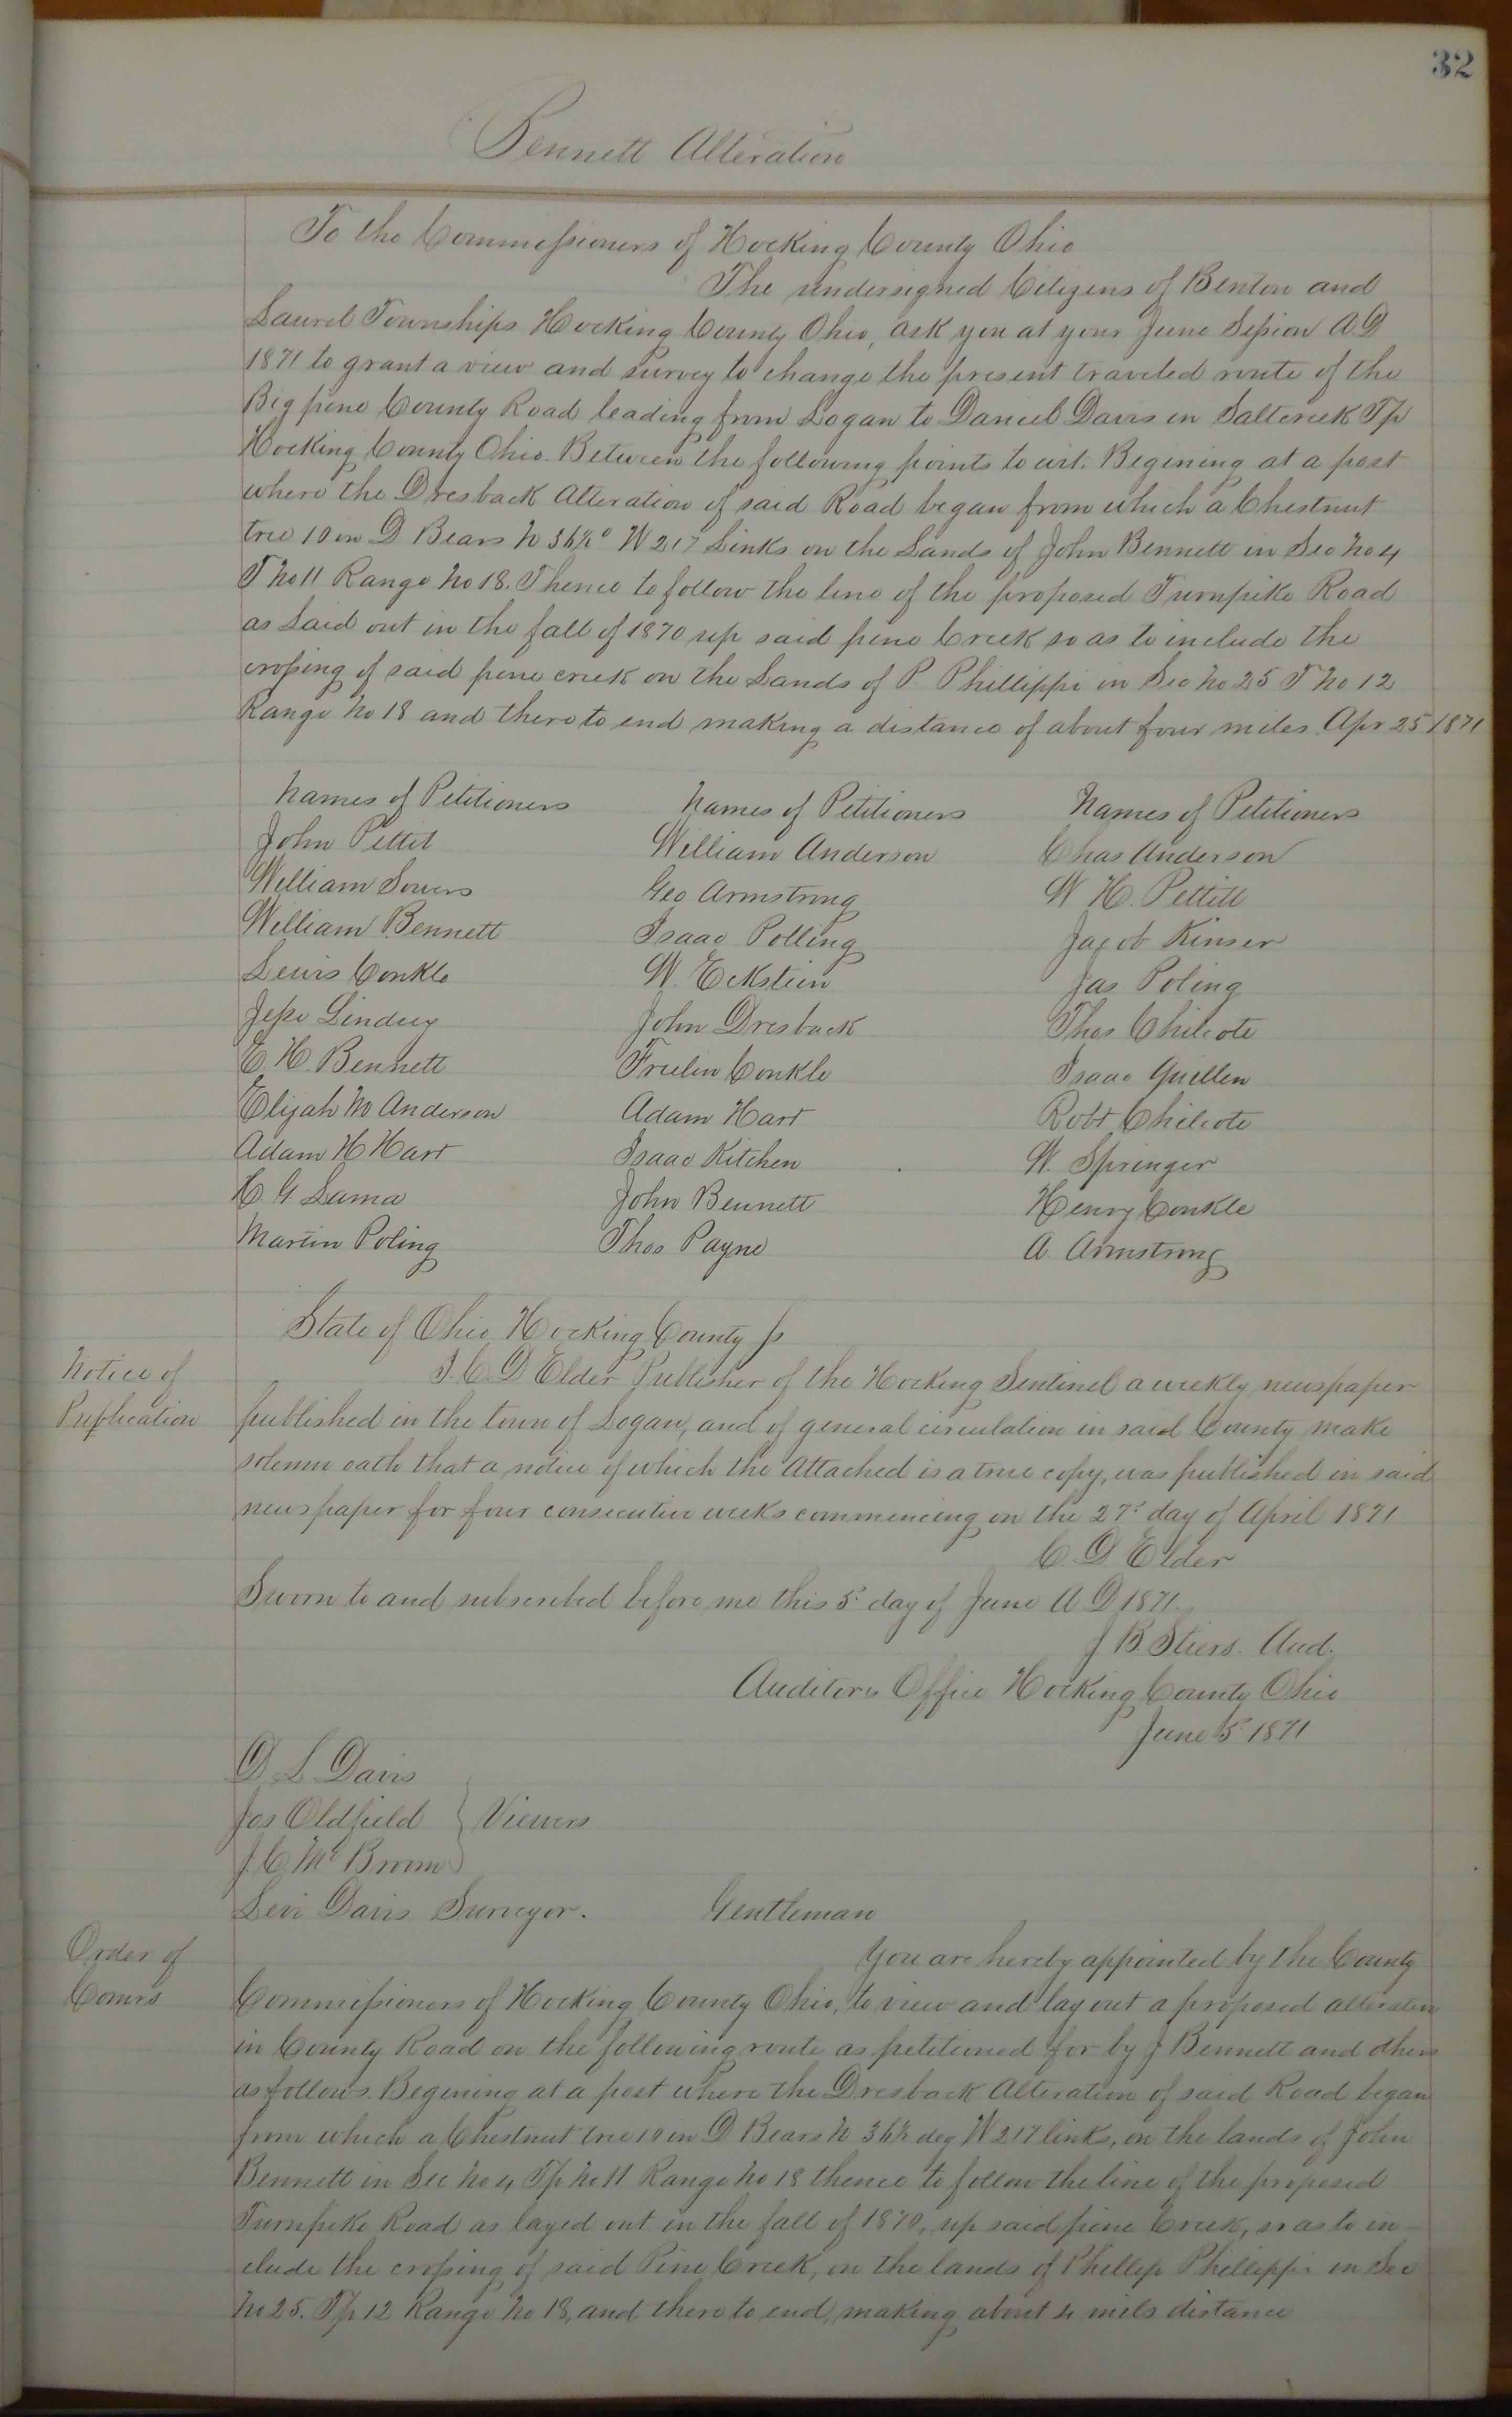 32
Bennett Alteration
To the Commissioners of Hocking County Ohio
The undersigned Citizens of Benton and
Laurel Townships Hocking County Ohio, ask you at your June Session A.D
1871 to grant a view and survey to change the present traveled route of the
Big pine County Road leading from Logan to Daniel Davis in Saltcreek Tp
Hocking County Ohio. Between the following points to wit. Begining at a post
where the Dresback Alteration of said Road began from which a Chestnut
tree 10 in D Bears N 36½° W 217 Links on the Lands of John Bennett in Sec No 4
T No 11 Range No 18. Thence to follow the line of the proposed Turnpike Road
as Laid out in the fall of 1870 up said pine Creek so as to include the
crossing of said pine creek on the Lands of P. Phillippi in Sec No 25 T No 12
Range No 18 and there to end making a distance of about four miles. Apr 25 1871
Names of Petitioners Names of Petitioners Names of Petitioners
John Pettit William Anderson Chas Anderson
William Sowers Geo Armstrong W H. Pettitt
William Bennett Isaac Polling Jacob Kinser
Lewis Conkle W. Eckstein Jas Poling
Jesse Lindsey John Dresback Thos Chilcote
E. H. Bennett Freelin Conkle Isaac Quillen
Elijah M Anderson Adam Hart Robt Chilcote
Adam H Hart Isaac Kitchen W. Springer
C. G. Lama John Bennett Henry Conkle
Martin Poling Thos Payne A. Armstrong
State of Ohio Hocking County Ss
Notice of
Publication
I. C. D Elder Publisher of the Hocking Sentinel a weekly newspaper
published in the town of Logan, and of general circulation in said County make
solemn oath that a notice of which the Attached is a true copy, was published in said
newspaper for four consecutive weeks commencing on the 27" day of April 1871
C. D Elder
Sworn to and subscribed before me this 5" day of June A D 1871.
J B. Stiers. Aud.
Auditors Office Hocking County Ohio
June 5" 1871
D. L Davis
Jos Oldfield } Viewers
J. C. Mc Broom
Levi Davis Surveyor. Gentleman
Order of
Comrs
You are hereby appointed by the County
Commissioners of Hocking County Ohio, to view and lay out a proposed alteration
in County Road on the following route as petitioned for by J Bennett and others
as follows. Begining at a post where the Dresback Alteration of said Road began
from which a Chestnut tree 10 in D Bears N 36½ deg W 217 links, on the lands of John
Bennett in Sec No 4 Tp No 11 Range No 18 thence to follow the line of the proposed
Turnpike Road as layed out in the fall of 1870, up said pine Creek, so as to in-
clude the crossing of said Pine Creek, on the lands of Phillip Phillippi in Sec
No 25. Tp 12 Range No 18, and there to end, making about 4 mils distance